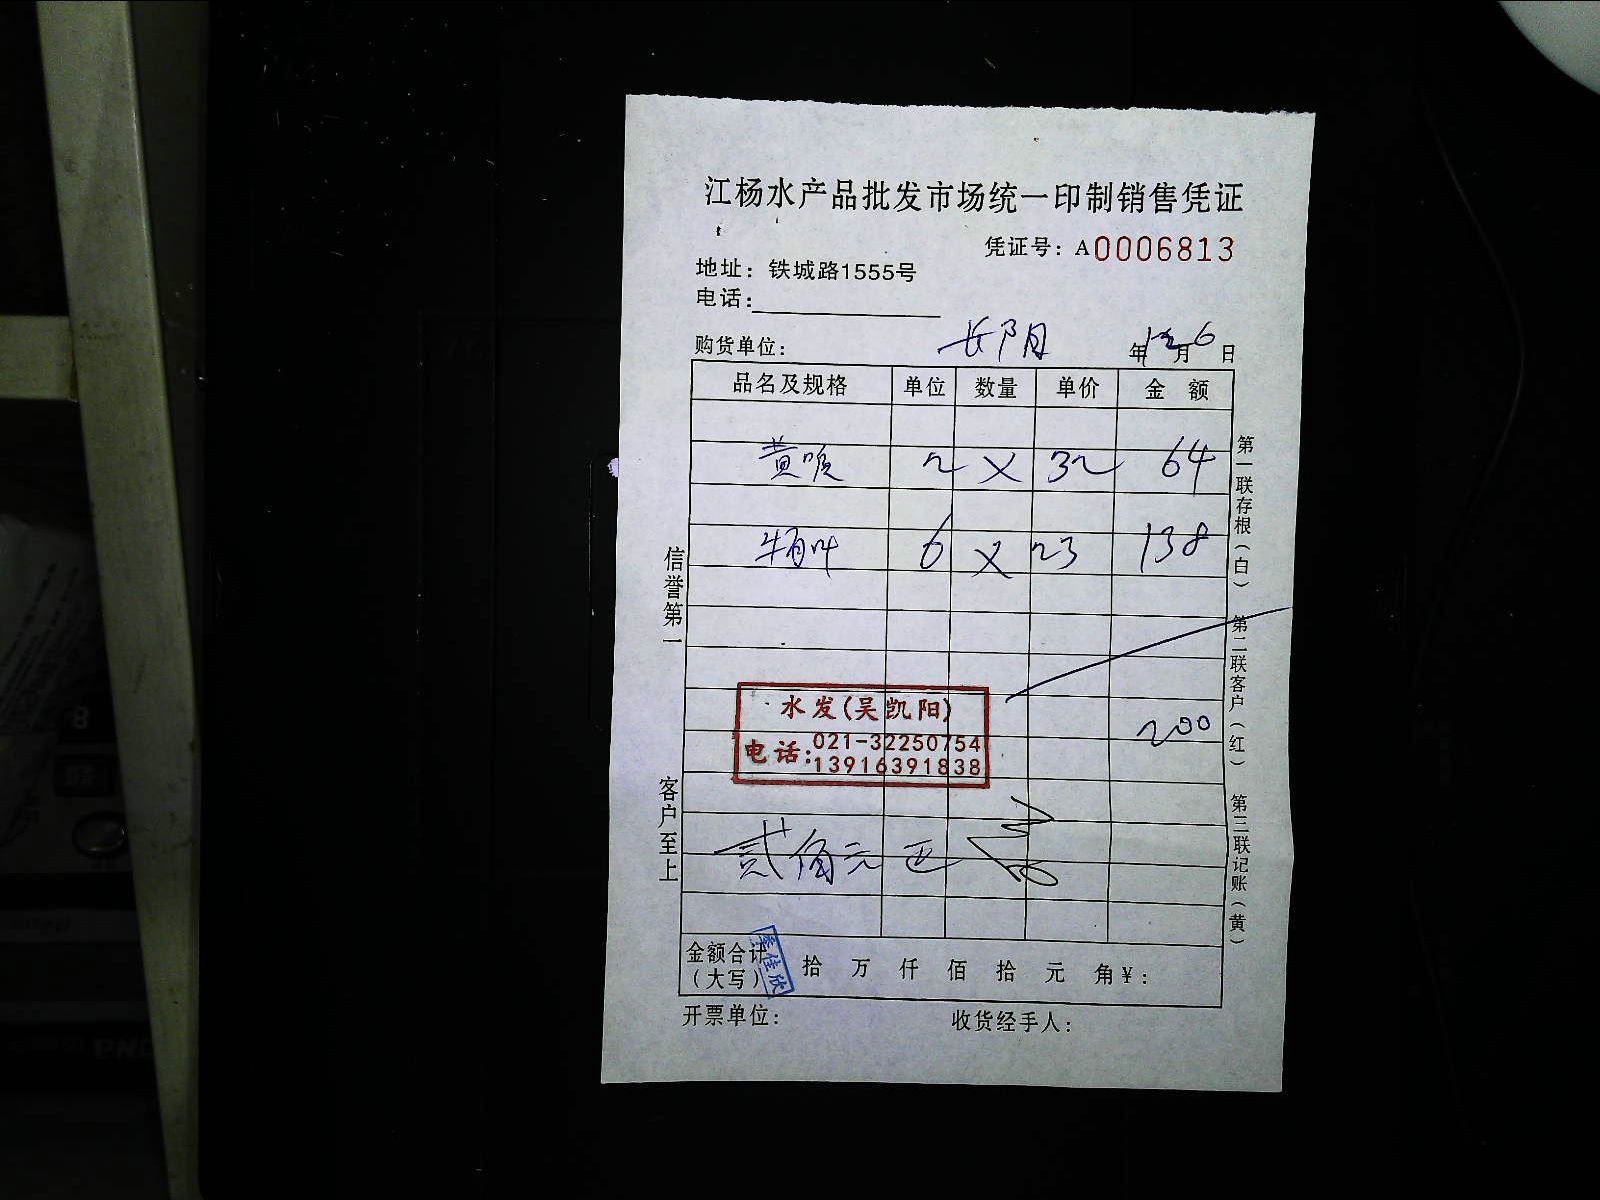 江杨水产品批发市场统一印制销售凭证
凭证号：A0006813
地址：铁城路1555号
电话：
购货单位： 长阳 年12月6日
品名及规格 单位 数量 单价 金 额
黄喉 2 × 32 64
6 × 23 138
200
水发(吴凯阳)
电话：021-32250754
13916391838
贰佰元正
金额合计（大写） 拾 万 仟 佰 拾 元 角￥：
季佳欣
开票单位： 收货经手人：
信誉第一
客户至上
第一联存根（白） 第二联客户（红） 第三联记账（黄）